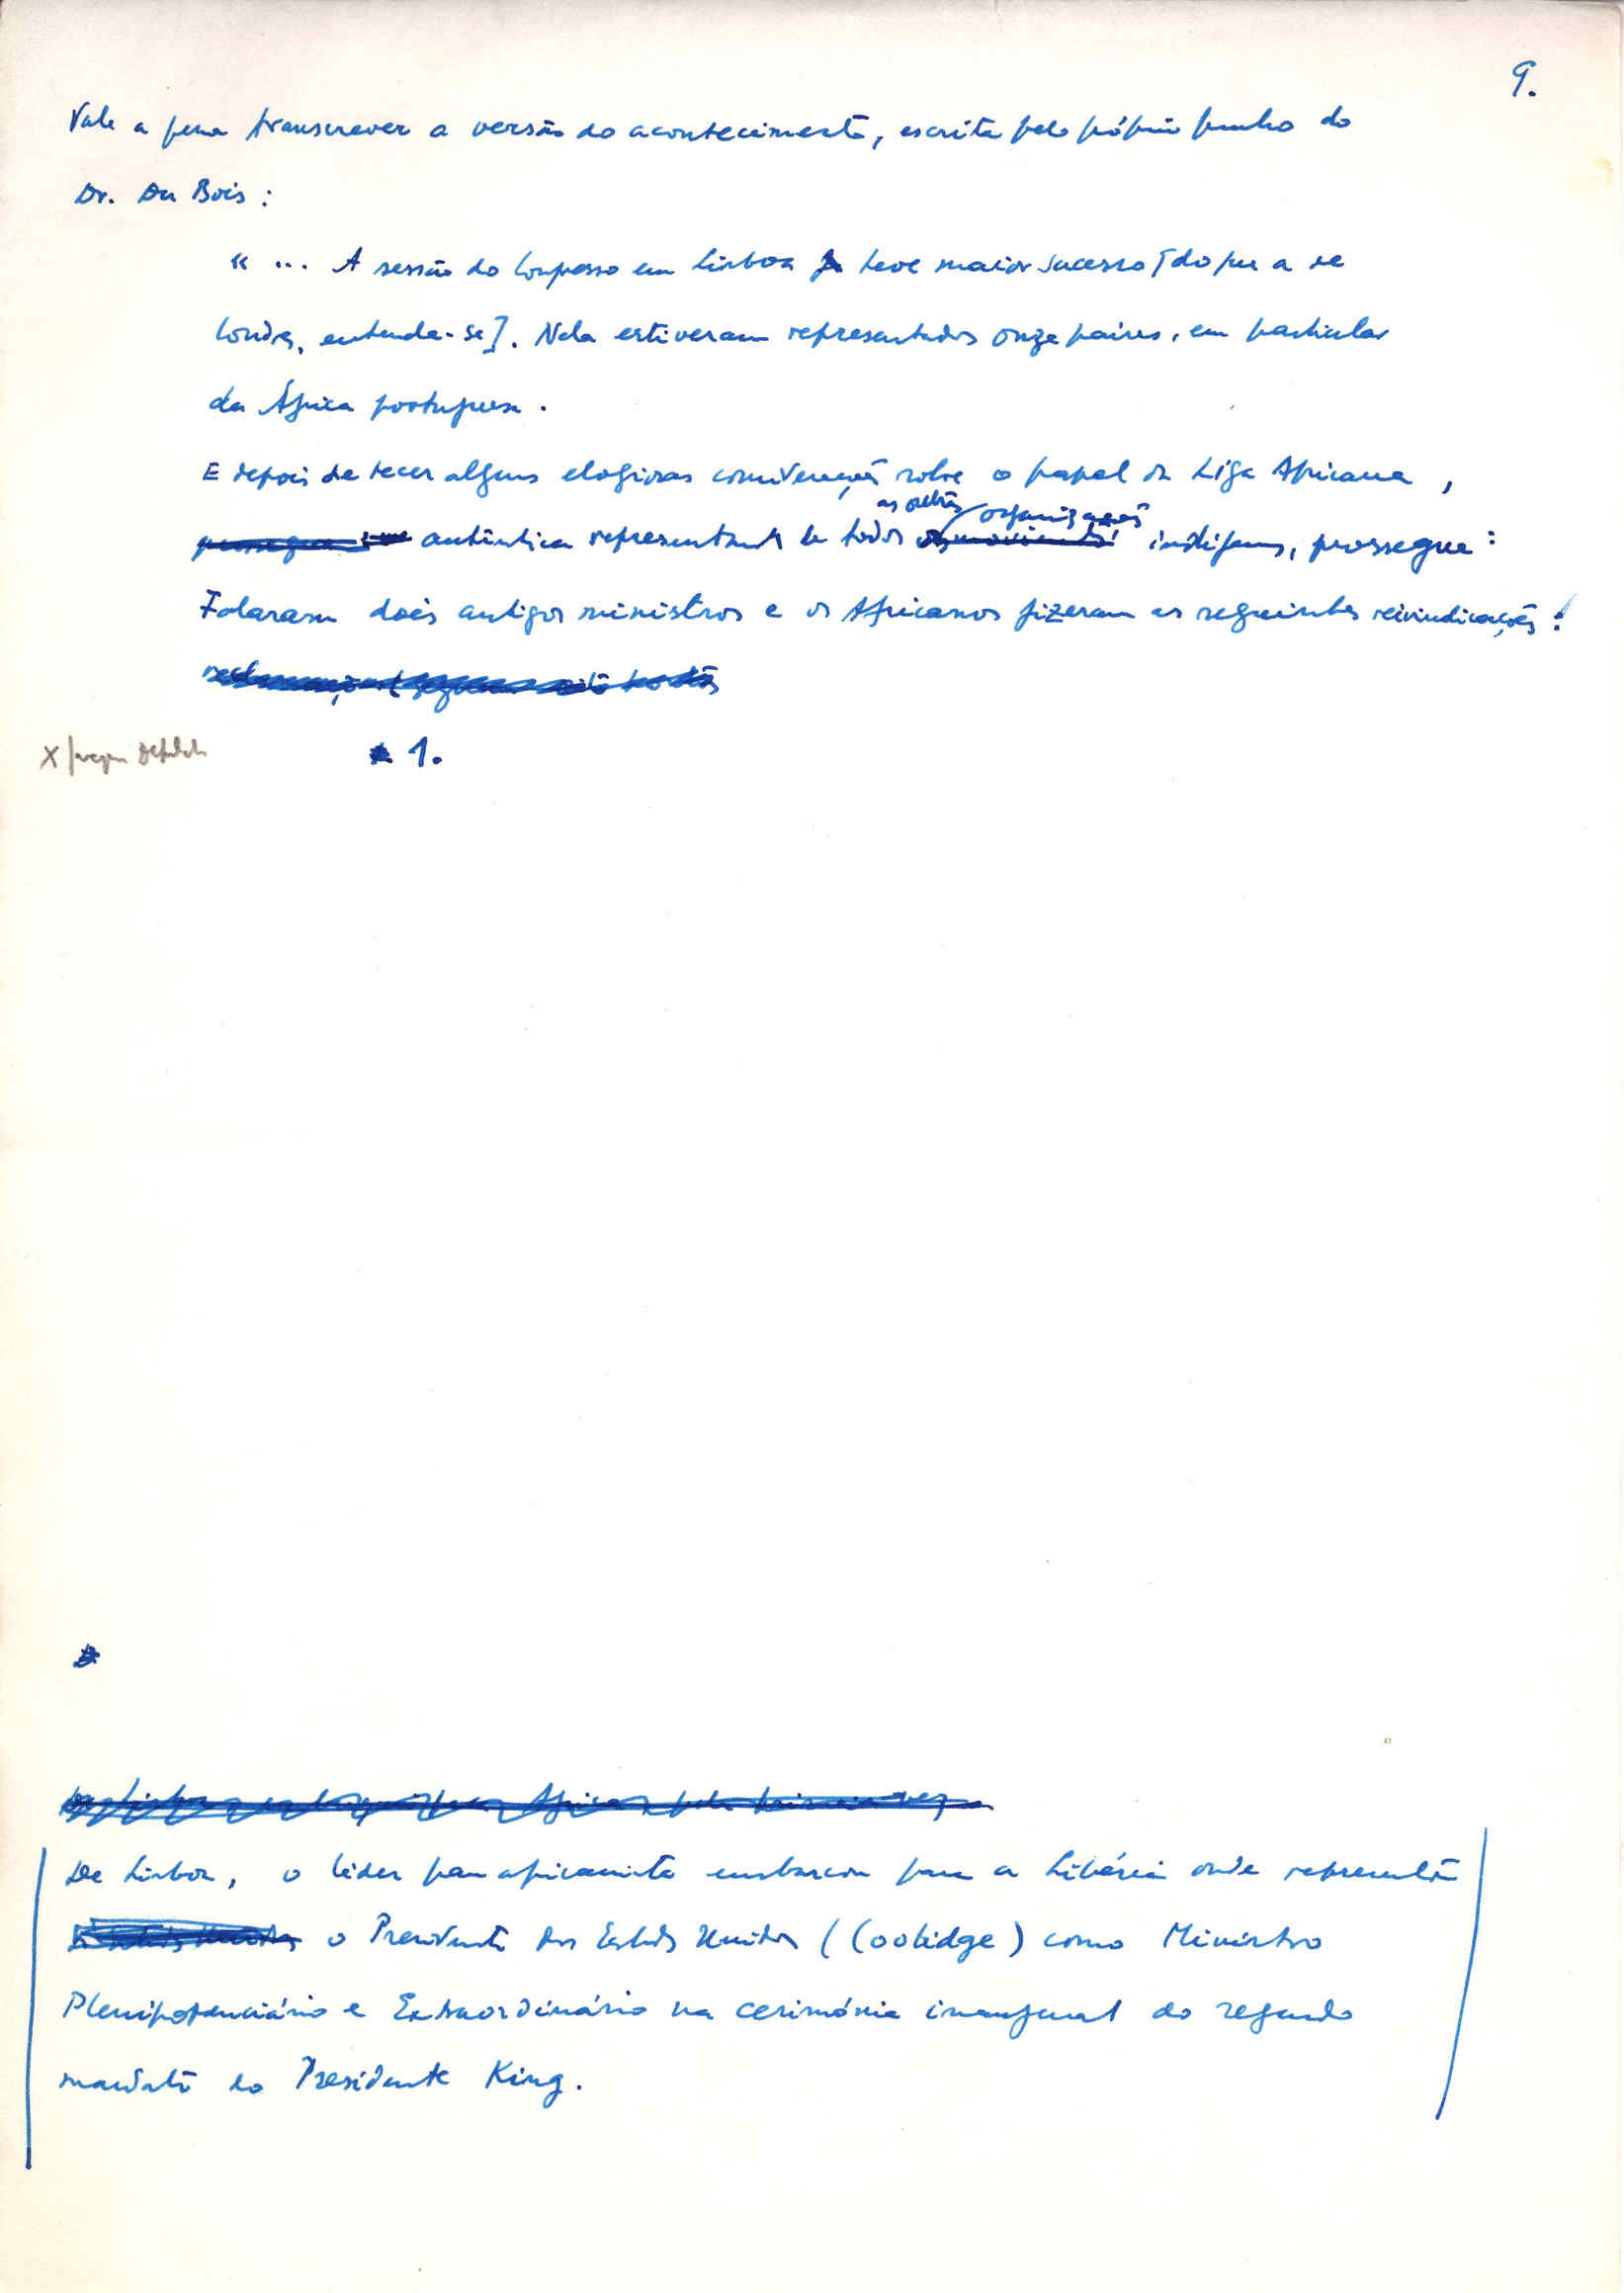 9.
Vale a pena transcrever a versão do acontecimento, escrita pelo próprio punho do
Dr. Du Bois :
« ... A sessão do Congresso em Lisboa teve maior sucesso [do que a de
Londres, entenda-se]. Nela estiveram representados onze países, em particular
da África portuguesa.
E depois de tecer alguns elogiosas considerações sobre o papel da Liga Africana,
as outras organizações
autêntica representante de todos indígenas, prossegue :
Falaram dois antigos ministros e os Africanos fizeram as seguintes reivindicações :
X
1.
De Lisboa, o líder panafricanista embarcou para a Libéria onde representou
o Presidente dos Estados Unidos (Coolidge) como Ministro
Plenipotenciário e Extraordinário na cerimónia inaugural do segundo
mandato do Presidente King.